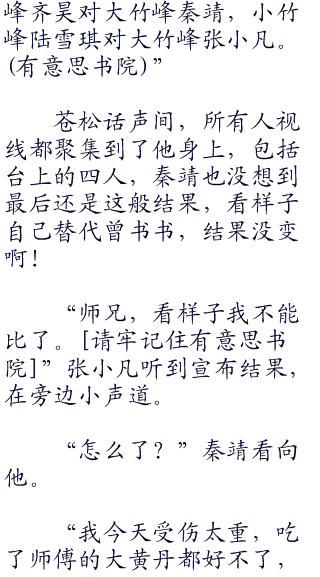 峰齐昊对大竹峰秦靖，小竹
峰陆雪琪对大竹峰张小凡。
(有意思书院)”
苍松话声间，所有人视
线都聚集到了他身上，包括
台上的四人，秦靖也没想到
最后还是这般结果，看样子
自己替代曾书书，结果没变
啊！
“师兄，看样子我不能
比了。[请牢记住有意思书
院]”张小凡听到宣布结果，
在旁边小声道。
“怎么了？”秦靖看向
他。
“我今天受伤太重，吃
了师傅的大黄丹都好不了，